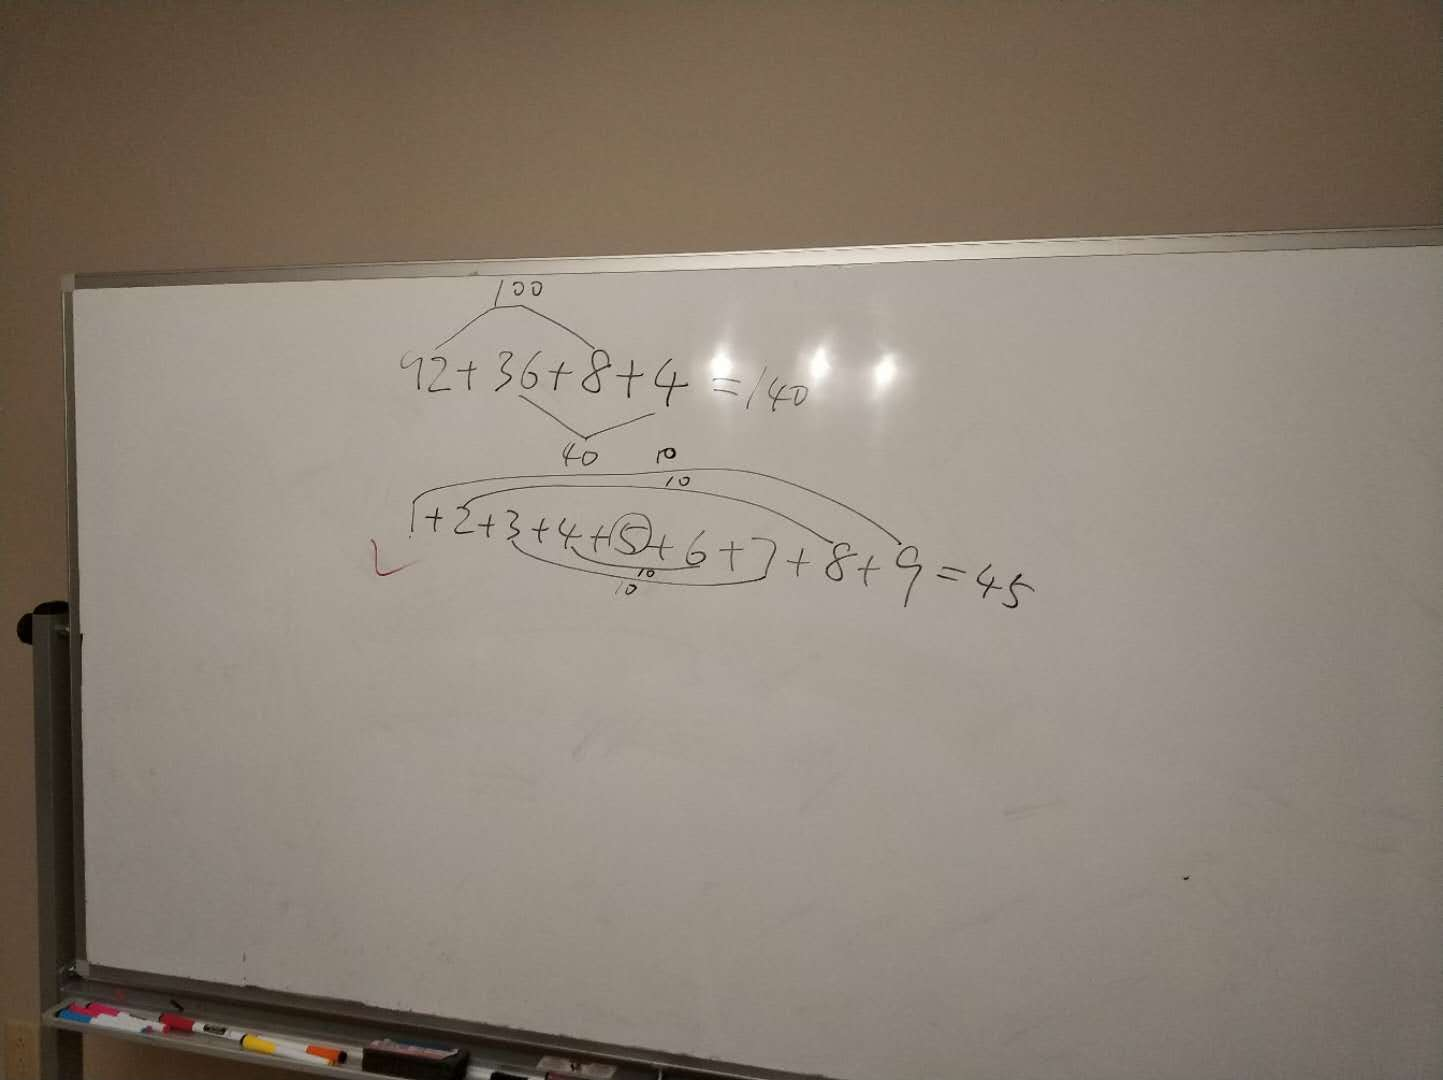 100
92+36+8+4=140
40
10
10
1+2+3+4+5+6+7+8+9=45
10
10